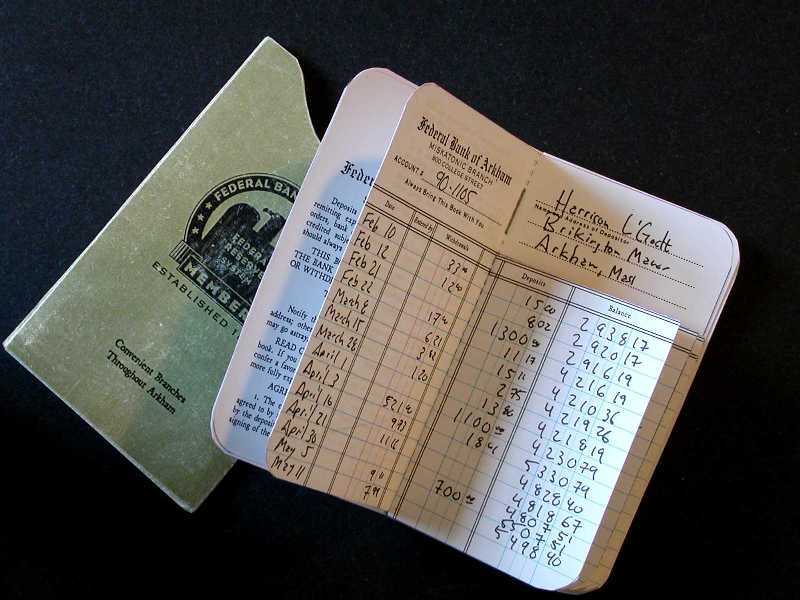 FEDERAL BANK
FEDERAL
RESERVE
SYSTEM
MEMBER
ESTABLISHED 1
Convenient Branches
Throughout Arkham
Feder
Deposits
remitting
orders, bank
credited
should always
THIS B
THE BANK
OR WITHD
Notify
address;
may go astray.
READ C
book. If you
confer a favor
more fully
AGR
1. The
agreed to by
by the
signing of the
Federal Bank of Arkham
MISKATONIC BRANCH
800 COLLEGE STREET
ACCOUNT # 90-1105
Always Bring This Book With You
Herrison
Name and Address of Depositor
Brikington Manor
Arkham, Mass
Date Entered by Withdrawals Deposits Balance
Feb 10 15 00 2938 17
Feb 12 33 8 02 2920 17
Feb 21 12 1300 2916 19
Feb 22 11 17 4216 19
March 8 17 15 11 4210 36
March 15 6 21 2 75 4219 26
March 28 13 80 4218 19
April 1 1 20 1100 4230 79
April 3 18 5330 79
April 16 521 4828 40
April 21 9 73 4818 67
April 30 11 16 4807 51
May 5 700 5507 51
May 11 9 11 5498 40